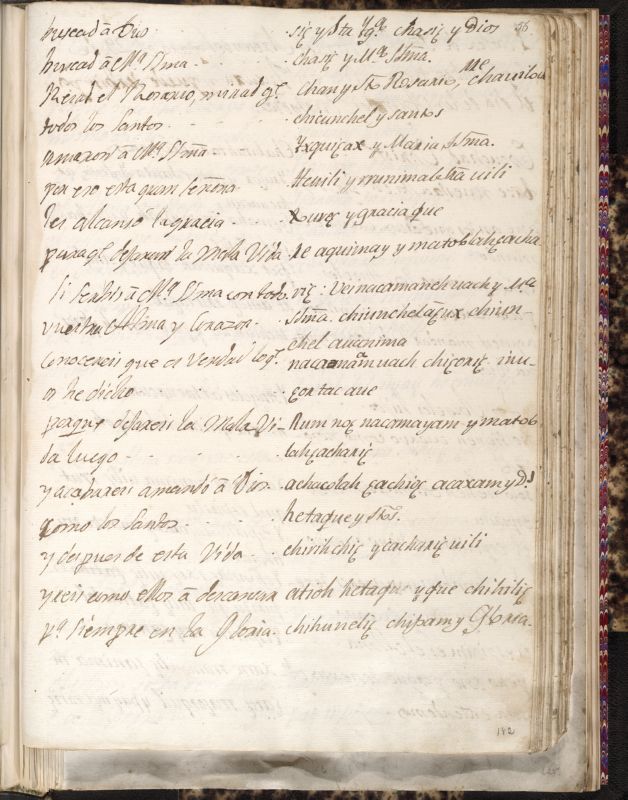 buscad â Dios. siç y Sta Ygª chasiç y Dios 96.
buscad â Mª SSma. chasiç y Mª SSm̃a.
Resad el Rosario, mirad qe chan y Sto Rosario, chauilou
todos los Santos. chicunchel y santos
amaron â Mª SSm̃a Yxquiçax y Maria SSm̃a.
por eso esta gran Señora Heuili y rrunimalcha uili
les alcansô la gracia. xuroç y gracia que
para qe dejaran la Mala Vida re aquimay y matoblahçacha
Si seruis â Mª SSma con todo riç. Vei nacamanehuach y Ma
vuestra Alma y Corazon. SSm̃a. chiunchel açux, chiun-
chel auanima
Conosereis que es Verdad lo qe nacanamauach chiçoriç inu-
os he dicho çortac aue
porque dejareis la Mala Vi- Rum noç nacamayam y matob
da luego lahçachariç
y acabareis amando â Dios. achacolah çachioç acaxam y Ds
como los Santos. hetaque y Stos.
y despues de esta Vida chirihchiç y cachariç uili
y reis como ellos â descansar atioh hetaque y que chihiliç
pª siempre en la Gloria. chihuneliç chipam y Gloria.
142